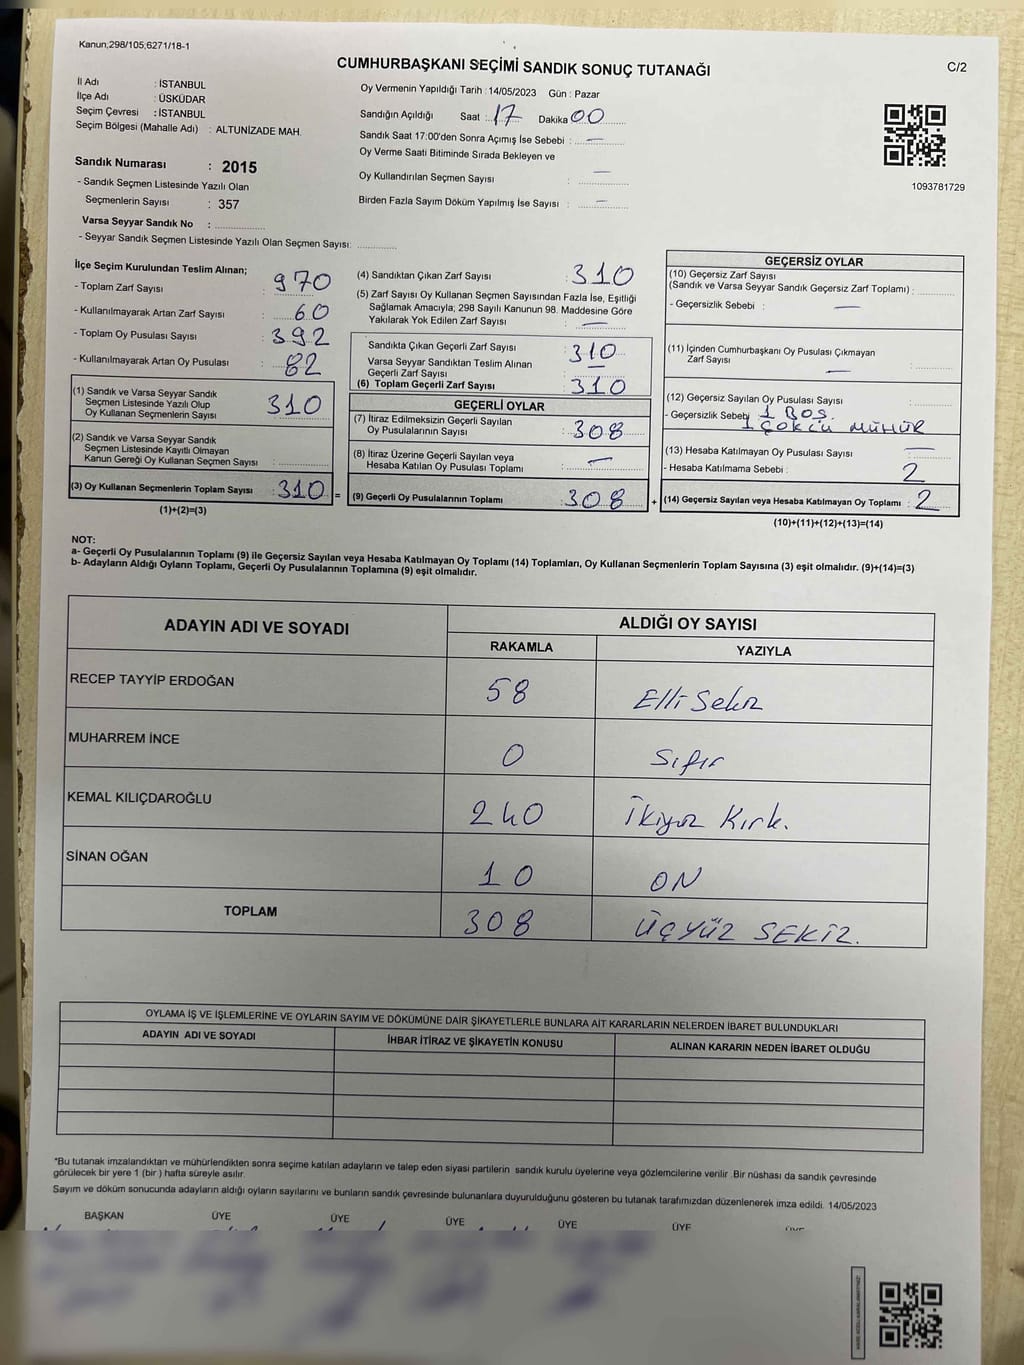 Kanun,298/105,6271/18-1
C/2
CUMHURBAŞKANI SEÇİMİ SANDIK SONUÇ TUTANAĞI
İl Adı : İSTANBUL
İlçe Adı : ÜSKÜDAR
Seçim Çevresi : İSTANBUL
Seçim Bölgesi (Mahalle Adı) : ALTUNİZADE MAH.
Sandık Numarası : 2015
- Sandık Seçmen Listesinde Yazılı Olan
Seçmenlerin Sayısı : 357
Varsa Seyyar Sandık No :
- Seyyar Sandık Seçmen Listesinde Yazılı Olan Seçmen Sayısı:
Oy Vermenin Yapıldığı Tarih : 14/05/2023 Gün : Pazar
Sandığın Açıldığı Saat : 17 Dakika 00
Sandık Saat 17:00'den Sonra Açımış İse Sebebi : —
Oy Verme Saati Bitiminde Sırada Bekleyen ve
Oy Kullandırılan Seçmen Sayısı : —
Birden Fazla Sayım Döküm Yapılmış İse Sayısı : —
1093781729
İlçe Seçim Kurulundan Teslim Alınan;
- Toplam Zarf Sayısı : 970
- Kullanılmayarak Artan Zarf Sayısı : 60
- Toplam Oy Pusulası Sayısı : 392
- Kullanılmayarak Artan Oy Pusulası : 82
(1) Sandık ve Varsa Seyyar Sandık
Seçmen Listesinde Yazılı Olup
Oy Kullanan Seçmenlerin Sayısı : 310
(2) Sandık ve Varsa Seyyar Sandık
Seçmen Listesinde Kayıtlı Olmayan
Kanun Gereği Oy Kullanan Seçmen Sayısı :
(3) Oy Kullanan Seçmenlerin Toplam Sayısı : 310 =
(1)+(2)=(3)
(4) Sandıktan Çıkan Zarf Sayısı : 310
(5) Zarf Sayısı Oy Kullanan Seçmen Sayısından Fazla İse, Eşitliği
Sağlamak Amacıyla; 298 Sayılı Kanunun 98. Maddesine Göre
Yakılarak Yok Edilen Zarf Sayısı : —
Sandıkta Çıkan Geçerli Zarf Sayısı : 310
Varsa Seyyar Sandıktan Teslim Alınan
Geçerli Zarf Sayısı : —
(6) Toplam Geçerli Zarf Sayısı : 310
GEÇERLİ OYLAR
(7) İtiraz Edilmeksizin Geçerli Sayılan
Oy Pusulalarının Sayısı : 308
(8) İtiraz Üzerine Geçerli Sayılan veya
Hesaba Katılan Oy Pusulası Toplamı : —
(9) Geçerli Oy Pusulalarının Toplamı : 308 +
GEÇERSİZ OYLAR
(10) Geçersiz Zarf Sayısı
(Sandık ve Varsa Seyyar Sandık Geçersiz Zarf Toplamı) :
- Geçersizlik Sebebi : —
(11) İçinden Cumhurbaşkanı Oy Pusulası Çıkmayan
Zarf Sayısı — :
(12) Geçersiz Sayılan Oy Pusulası Sayısı
- Geçersizlik Sebebi 1 BOŞ.
1 ÇOKLU MÜHÜR
(13) Hesaba Katılmayan Oy Pusulası Sayısı —
- Hesaba Katılmama Sebebi : 2
(14) Geçersiz Sayılan veya Hesaba Katılmayan Oy Toplamı : 2
(10)+(11)+(12)+(13)=(14)
NOT:
a- Geçerli Oy Pusulalarının Toplamı (9) ile Geçersiz Sayılan veya Hesaba Katılmayan Oy Toplamı (14) Toplamları, Oy Kullanan Seçmenlerin Toplam Sayısına (3) eşit olmalıdır. (9)+(14)=(3)
b- Adayların Aldığı Oyların Toplamı, Geçerli Oy Pusulalarının Toplamına (9) eşit olmalıdır.
ADAYIN ADI VE SOYADI ALDIĞI OY SAYISI
RAKAMLA YAZIYLA
RECEP TAYYİP ERDOĞAN 58 Elli Sekiz
MUHARREM İNCE 0 Sıfır
KEMAL KILIÇDAROĞLU 240 İkiyüz Kırk.
SİNAN OĞAN 10 ON
TOPLAM 308 ÜÇYÜZ SEKİZ.
OYLAMA İŞ VE İŞLEMLERİNE VE OYLARIN SAYIM VE DÖKÜMÜNE DAİR ŞİKAYETLERLE BUNLARA AİT KARARLARIN NELERDEN İBARET BULUNDUKLARI
ADAYIN ADI VE SOYADI İHBAR İTİRAZ VE ŞİKAYETİN KONUSU ALINAN KARARIN NEDEN İBARET OLDUĞU
*Bu tutanak imzalandıktan ve mühürlendikten sonra seçime katılan adayların ve talep eden siyasi partilerin sandık kurulu üyelerine veya gözlemcilerine verilir .Bir nüshası da sandık çevresinde
görülecek bir yere 1 (bir ) hafta süreyle asılır.
Sayım ve döküm sonucunda adayların aldığı oyların sayılarını ve bunların sandık çevresinde bulunanlara duyurulduğunu gösteren bu tutanak tarafımızdan düzenlenerek imza edildi. 14/05/2023
BAŞKAN ÜYE ÜYE ÜYE ÜYE ÜYE ÜYE